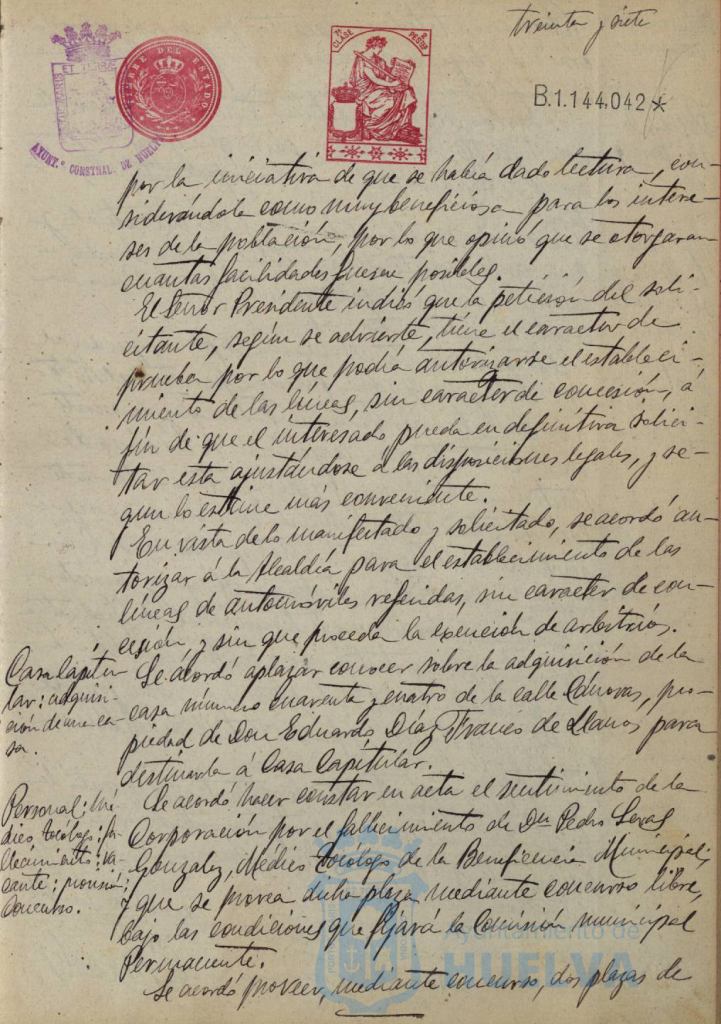 treinta y siete
TIMBRE DEL ESTADO
11ª CLASE
PESOS
B.1.144,042*
AYUNT.º CONSTNAL. DE HUELVA
por la iniciativa de que se había dado lectura, con-
siderándola como muy beneficiosa para los intere-
ses de la población, por lo que opinó que se otorgaran
cuantas facilidades fuesen posibles.
El Señor Presidente indicó que la petición del soli-
citante, según se advierte, tiene el caracter de
prueba por lo que podría autorizarse el estableci-
miento de las líneas, sin caracter de concesión, á
fin de que el interesado pueda en definitiva solici-
tar esta ajustándose a las disposiciones legales, y se-
gun lo estime más conveniente.
En vista de lo manifestado y solicitado, se acordó au-
torizar á la Alcaldía para el establecimiento de las
líneas de automóviles referidas, sin caracter de con-
cesión y sin que proceda la exención de arbitrios.
Casa Capitu-
lar: adquisi-
ción de una ca-
sa.
Se acordó aplazar conocer sobre la adquisición de la
casa número cuarenta y cuatro de la calle Cánovas, pro-
piedad de Don Eduardo Díaz Franco de Llanos para
destinarla á Casa Capitular.
Personal: Mé-
dico tocólogo: fa-
llecimiento: va-
cante: provisión:
concurso.
Se acordó hacer constar en acta el sentimiento de la
Corporación por el fallecimiento de Dn Pedro
Gonzalez, Médico Tocólogo de la Beneficencia Municipal,
y que se provea dicha plaza mediante concurso libre,
bajo las condiciones que fijará la Comisión municipal
Permanente.
Se acordó proveer, mediante concurso, dos plazas de
Ayuntamiento de
HUELVA